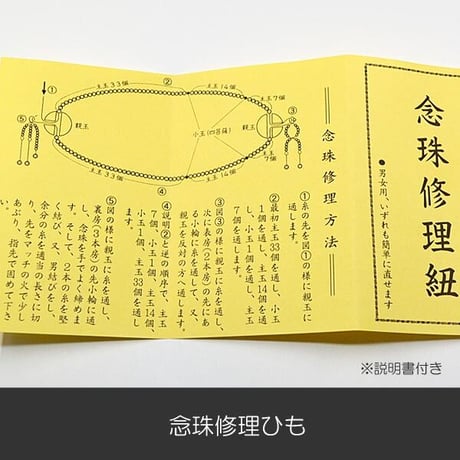 念珠修理紐
●男女用、いずれも簡単に直せます
念珠修理方法
主玉33個
②
主玉14個
主玉7個
①
③
⑤
親玉
小玉(四菩薩)
親玉
主玉7個
主玉33個
④
主玉14個
①糸の先を図①の様に親玉に
通します。
②最初主玉33個を通し、小玉
1個を通し、主玉14個
を通し、小玉1個、主玉
7個を通します。
③図③の様に親玉に糸を通し、
次に表房(2本房)の先にあ
る小輪に糸を通して、又、
親玉を反対の方へ通します。
④説明②と逆の順序で、主玉
7個、小玉1個、主玉14個、
小玉1個、主玉33個を通し
ます。
⑤図の様に親玉に糸を通し、
裏房(3本房)の先小輪に通
し、念珠を手でよく締めま
す。そして、2本の糸を堅
く結び、又、男結びをし、
余分の糸を適当の長さに切
り、先をマッチの火で少し
あぶり、指先で固めて下さ
※説明書付き
念珠修理ひも